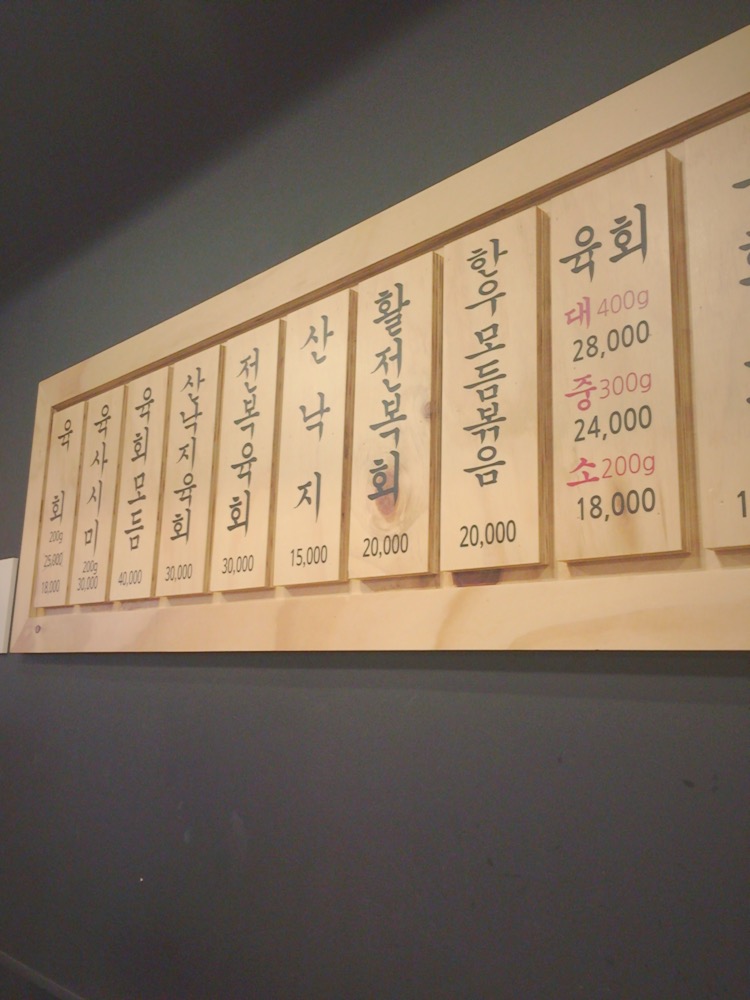 육회
200g
25,000
18,000
육사시미
200g
30,000
육회모듬
40,000
산낙지육회
30,000
전복육회
30,000
산낙지
15,000
활전복회
20,000
한우모듬볶음
20,000
육회
대 400g
28,000
중 300g
24,000
소 200g
18,000